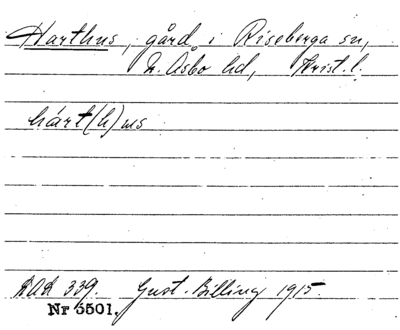 Harthus, gård i Riseberga sn,
N. Åsbo hd, Krist. l.
hárt(h)us
DAL 339. Gust. Billing 1915.
Nr 5501.